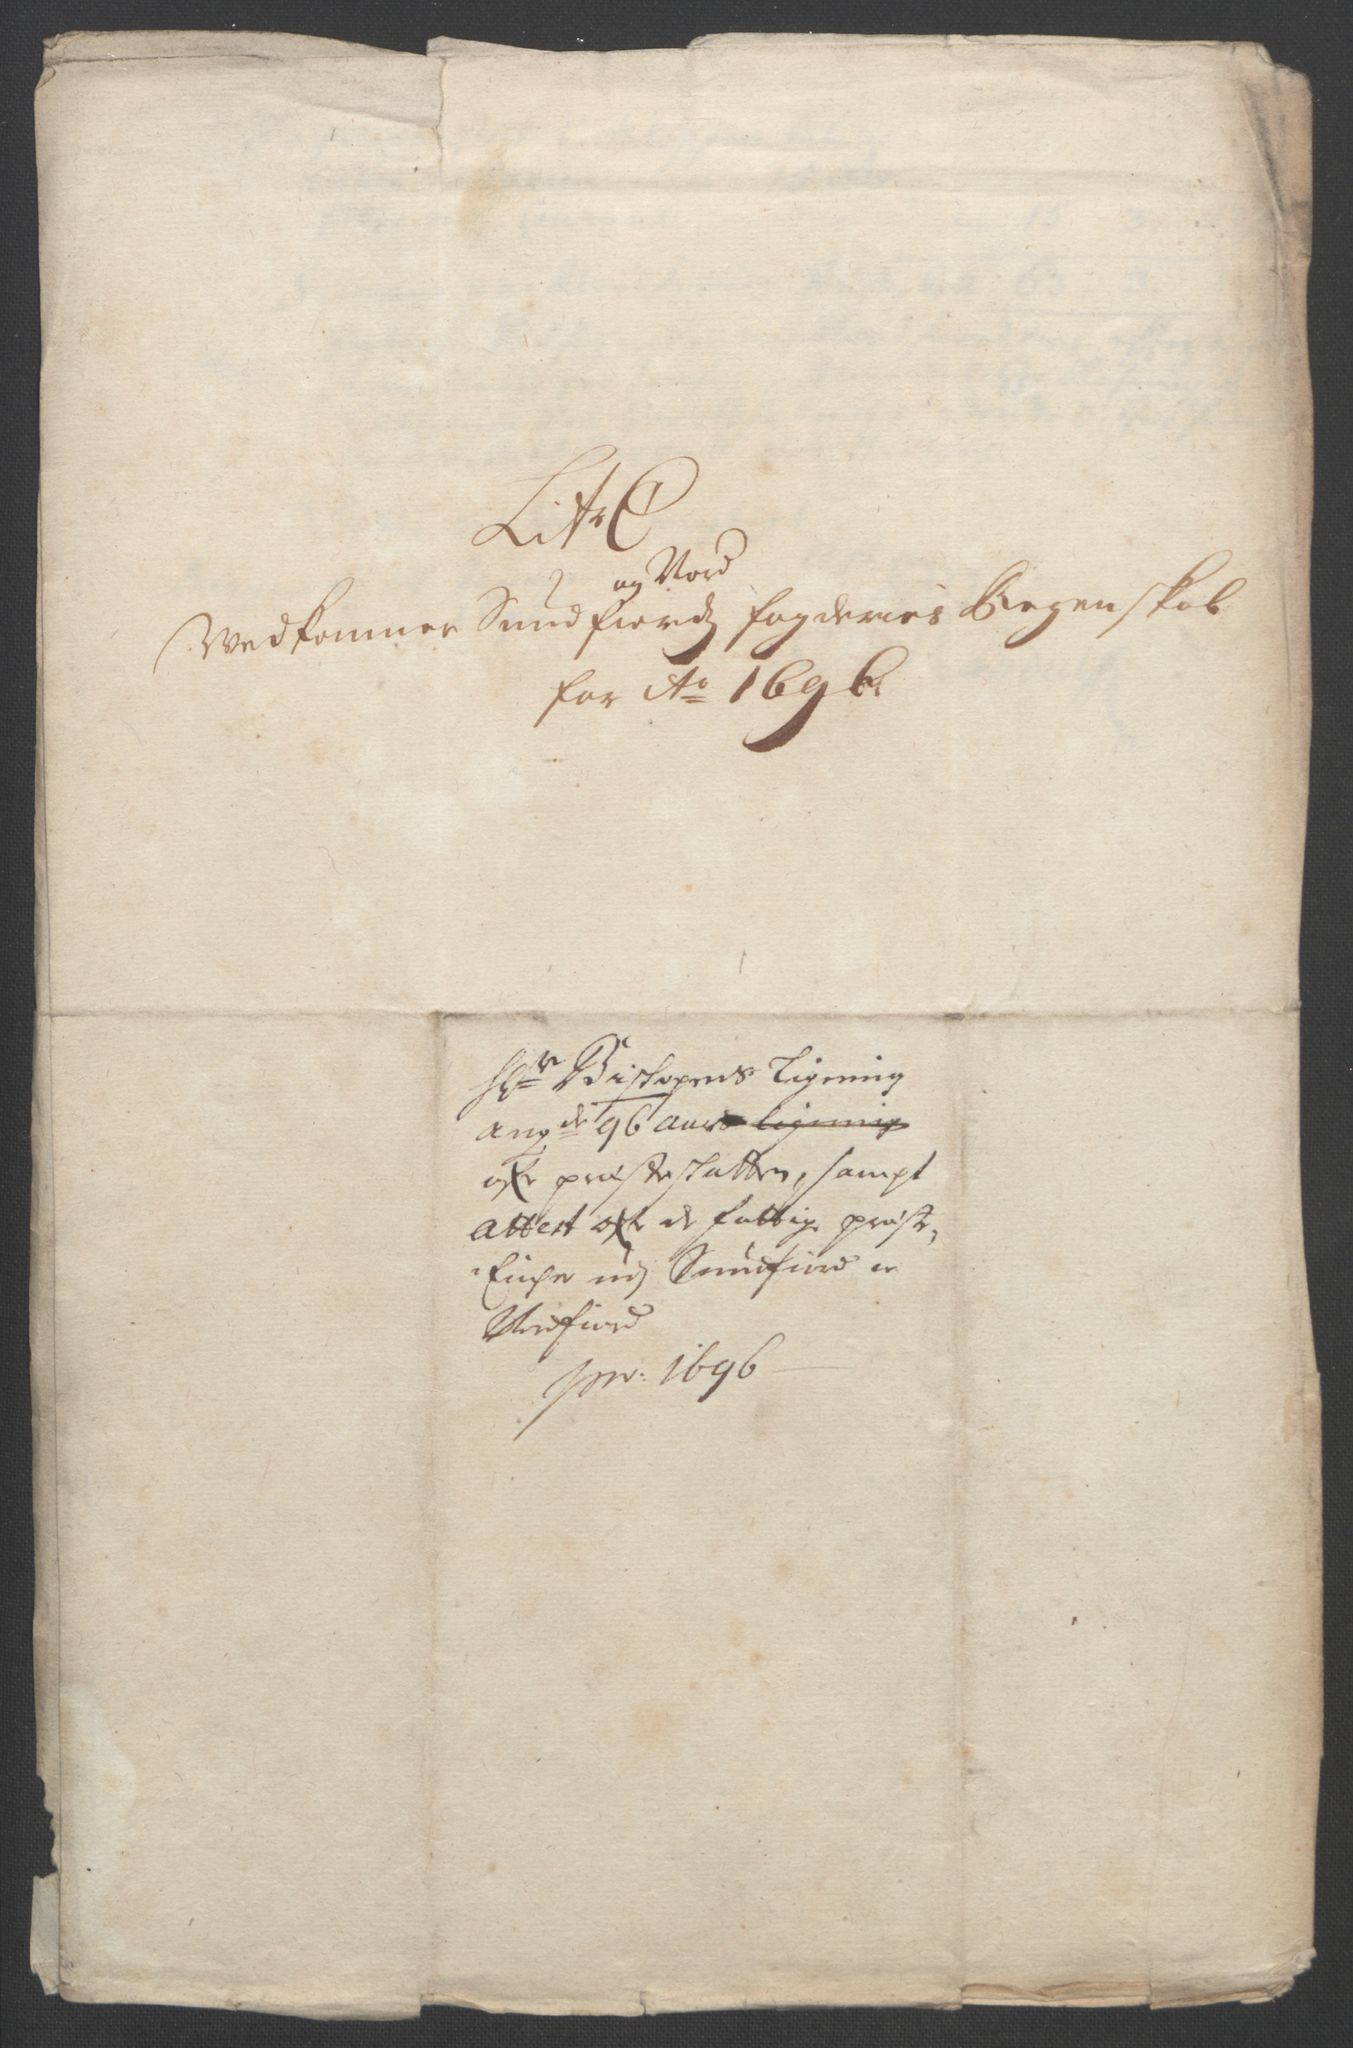 Litr C
og Nord
Vedkommer Sundfiords fogderies Regenskab
for Ao 1696
Hr Bispens Ligning
angde 96 aars ligning
ofr præsteskatten, sampt
attest ofr de fattige præste,
Encher udj Sundfiord oc
Nordfiord
pro: 1696